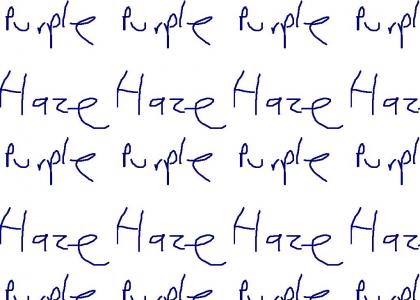 Purple Purple Purple Purpl
Haze Haze Haze Haz
Purple Purple Purple Purpl
Haze Haze Haze Haz
Purple Purple Purple Purpl